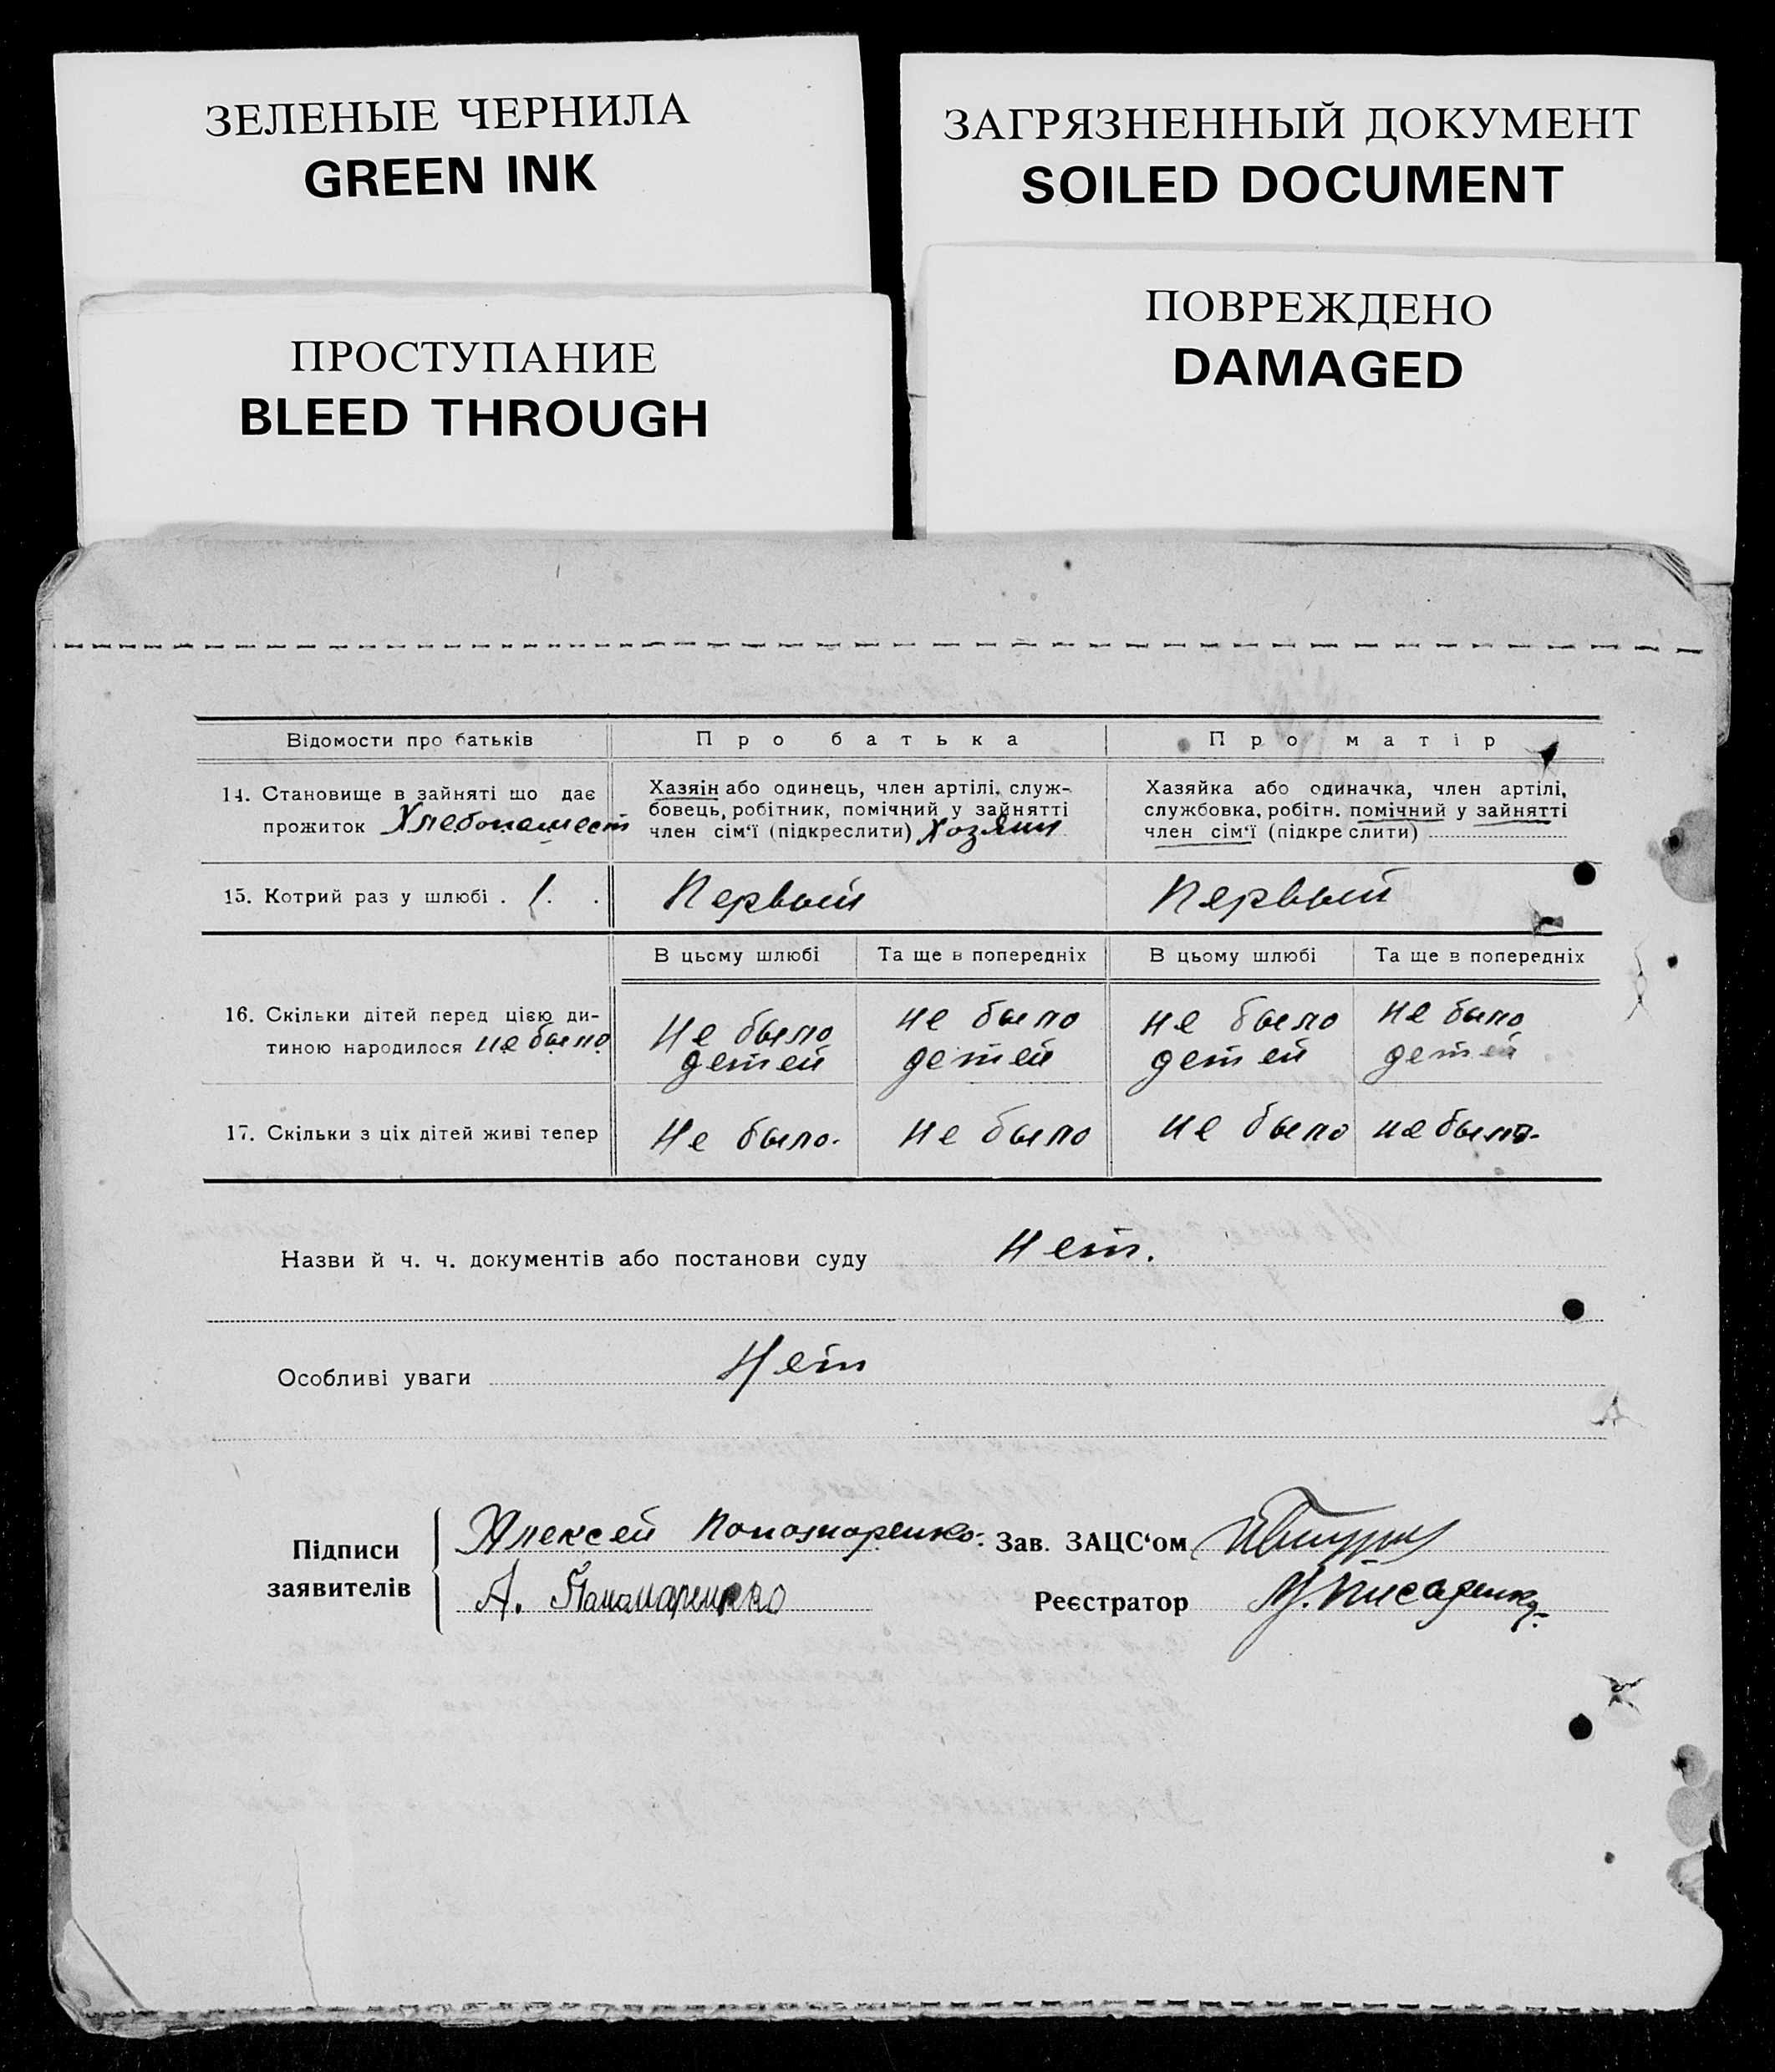 ЗЕЛЕНЫЕ ЧЕРНИЛА
GREEN INK
ЗАГРЯЗНЕННЫЙ ДОКУМЕНТ
SOILED DOCUMENT
ПРОСТУПАНИЕ
BLEED THROUGH
ПОВРЕЖДЕНО
DAMAGED
Відомости про батьків
Про батька
Про матір
14. Становище в зайняті що дає
прожиток Хлебопашест
Хазяін або одинець, член артілі, служ-
бовець, робітник, помічний у зайнятті
член сім'ї (підкреслити) Хозяин
Хазяйка або одиначка, член артілі,
службовка, робітн. помічний у зайнятті
член сім'ї (підкреслити)
15. Котрий раз у шлюбі . 1. .
Первый
Первый
В цьому шлюбі
Та ще в попередніх
В цьому шлюбі
Та ще в попередніх
16. Скільки дітей перед цією ди-
тиною народилося не было
Не было
детей
не было
детей
не было
детей
не было
детей
17. Скільки з ціх дітей живі тепер
Не было.
не было
не было
не было.
Назви й ч. ч. документів або постанови суду Нет.
Особливі уваги Нет
Підписи
заявителів
Алексей Пономаренко.
А. Панамаренко
Зав. ЗАЦС'ом
Реєстратор